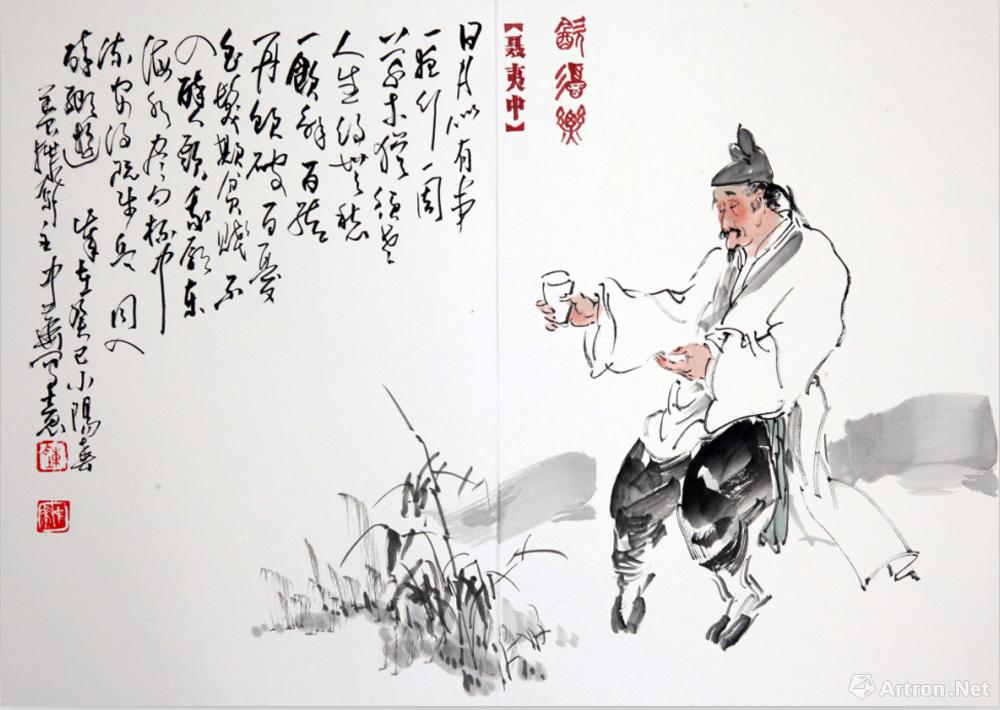 飲酒樂
【聂夷中】
日月似有事
一夜行一周
草木猶須老
人生得無愁
一飲解百結
再飲破百憂
白髮欺貧賤不
入醉人頭我願東
海水盡向杯中
流安得阮步兵同入
醉鄉遊 歲在癸巳小陽春
齋主中 寫意
Artron.Net